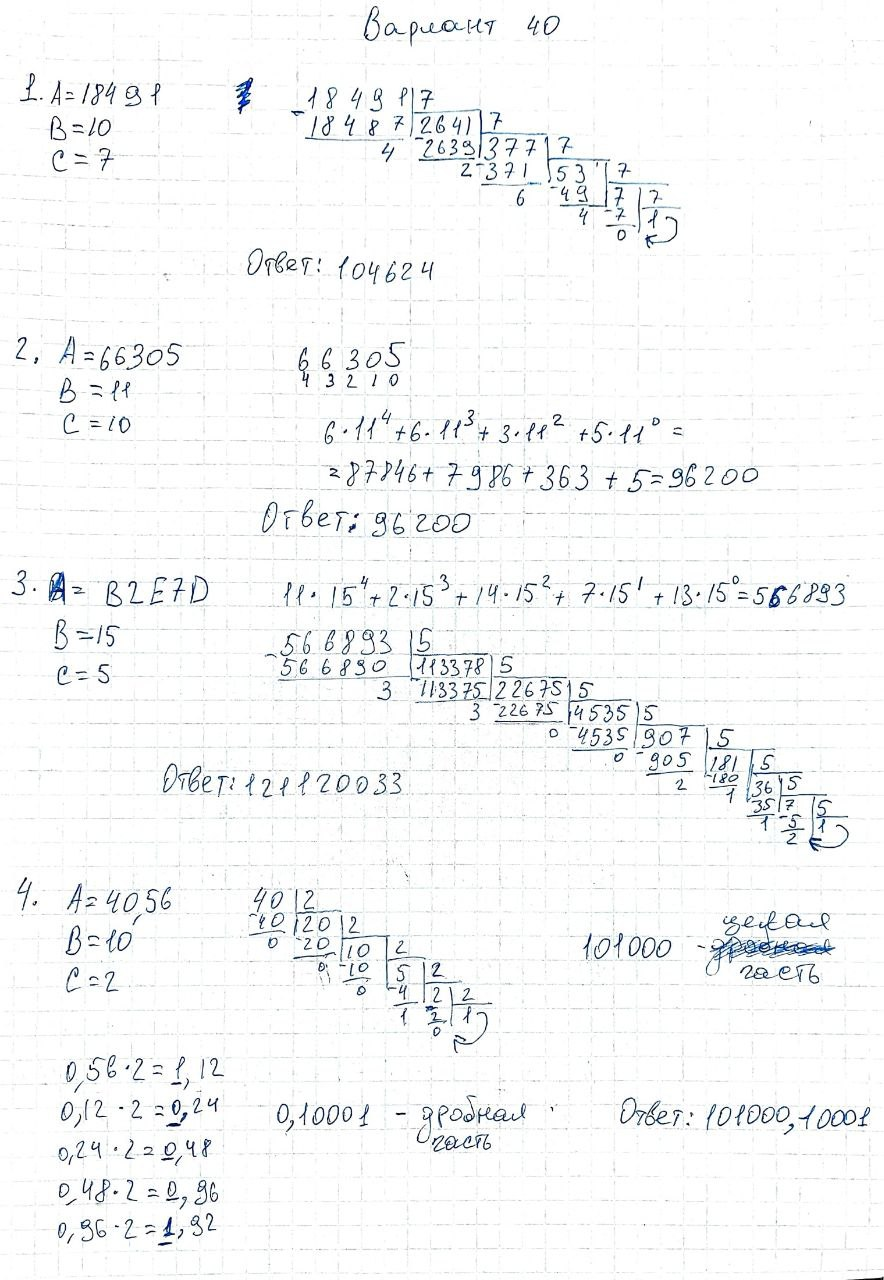 Вариант 40
1. A=18491
B=10
C=7
18491 7
-18487 2641 7
4 -2639 377 7
2 -371 53 7
6 -49 7 7
4 -7 1
0
Ответ: 104624
2. A=66305
B=11
C=10
66305
4 3 2 1 0
6·11⁴+6·11³+3·11²+5·11⁰=
=87846+7986+363+5=96200
Ответ: 96200
3. A= B2E7D
B=15
C=5
11·15⁴+2·15³+14·15²+7·15¹+13·15⁰=566893
-566893 5
566890 113378 5
3 113375 22675 5
3 -22675 4535 5
0 -4535 907 5
0 -905 181 5
2 -180 36 5
1 35 7 5
1 -5 1
2
Ответ: 121120033
4. A=40,56
B=10
C=2
40 2
-40 20 2
0 -20 10 2
0 -10 5 2
0 -4 2 2
1 -2 1
0
101000 - целая
часть
0,56·2=1,12
0,12·2=0,24
0,24·2=0,48
0,48·2=0,96
0,96·2=1,92
0,10001 - дробная
часть
Ответ: 101000,10001